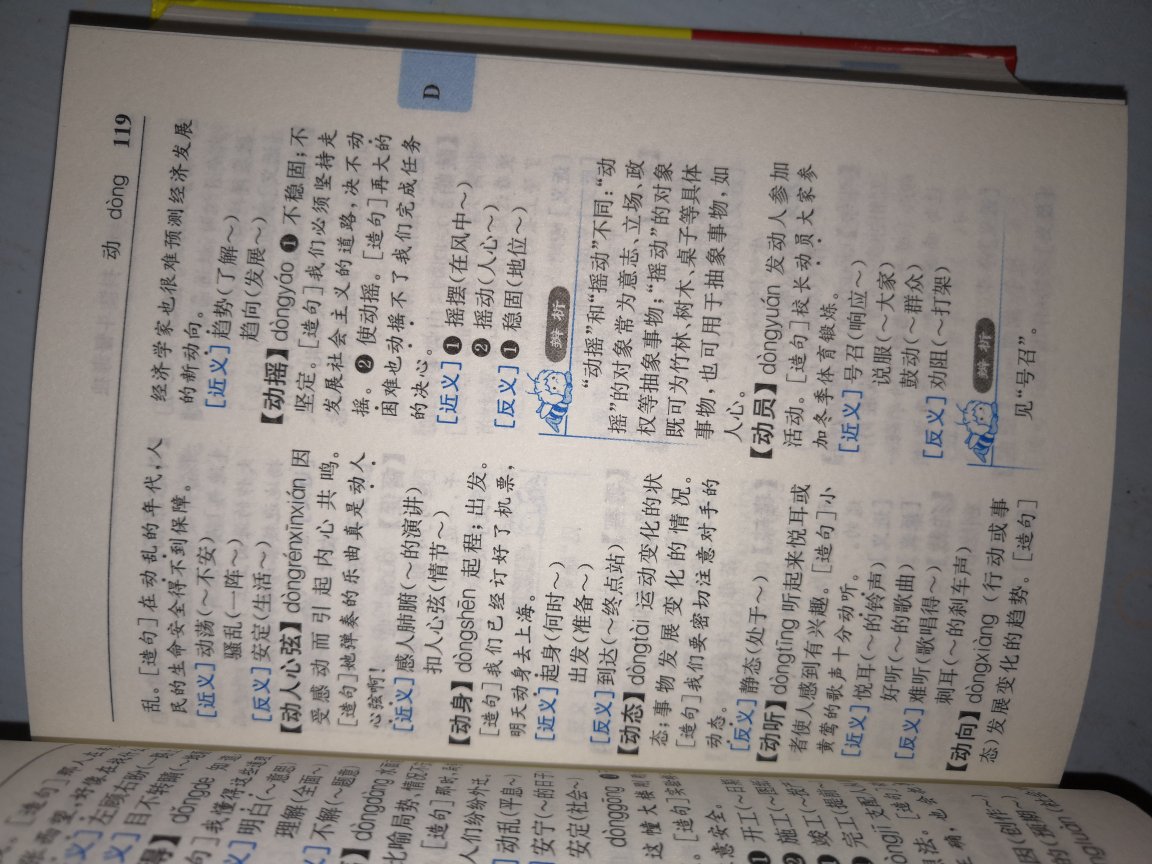 动 dòng 119
乱。[造句]在动乱的年代,人
民的生命安全得不到保障。
[近义]动荡(～不安)
骚乱(一阵～)
[反义]安定(生活～)
【动人心弦】dòngrénxīnxián 因
受感动而引起内心共鸣。
[造句]她弹奏的乐曲真是动人
心弦啊!
[近义]感人肺腑(～的演讲)
扣人心弦(情节～)
【动身】dòngshēn 起程;出发。
[造句]我们已经订好了机票,
明天动身去上海。
[近义]起身(何时～)
出发(准备～)
[反义]到达(～终点站)
【动态】dòngtài 运动变化的状
态;事物发展变化的情况。
[造句]我们要密切注意对手的
动态。
[反义]静态(处于～)
【动听】dòngtīng 听起来悦耳或
者使人感到有兴趣。[造句]小
黄莺的歌声十分动听。
[近义]悦耳(～的铃声)
好听(～的歌曲)
[反义]难听(歌唱得～)
刺耳(～的刹车声)
【动向】dòngxiàng (行动或事
态)发展变化的趋势。[造句]
经济学家也很难预测经济发展
的新动向。
[近义]趋势(了解～)
趋向(发展～)
【动摇】dòngyáo ❶ 不稳固;不
坚定。[造句]我们必须坚持走
发展社会主义的道路,决不动
摇。❷ 使动摇。[造句]再大的
困难也动摇不了我们完成任务
的决心。
[近义]❶ 摇摆(在风中～)
❷ 摇动(人心～)
[反义]❶ 稳固(地位～)
辨析
“动摇”和“摇动”不同:“动
摇”的对象常为意志、立场、政
权等抽象事物;“摇动”的对象
既可为竹林、树木、桌子等具体
事物,也可用于抽象事物,如
人心。
【动员】dòngyuán 发动人参加
活动。[造句]校长动员大家参
加冬季体育锻炼。
[近义]号召(响应～)
说服(～大家)
鼓动(～群众)
[反义]劝阻(～打架)
辨析
见“号召”。
D
左顾右盼
目不转睛
dǒngde
句]我懂得这些道
明白(～意思)
理解(全面～)
不解(～题意)
dòngdàng
比喻局势
[造句]那时,
人们纷纷外迁。
动乱(平息～)
安宁(～的日子)
安定(社会～)
dònggōng
这幢大楼
意安全。
开工
施工
竣工
完工